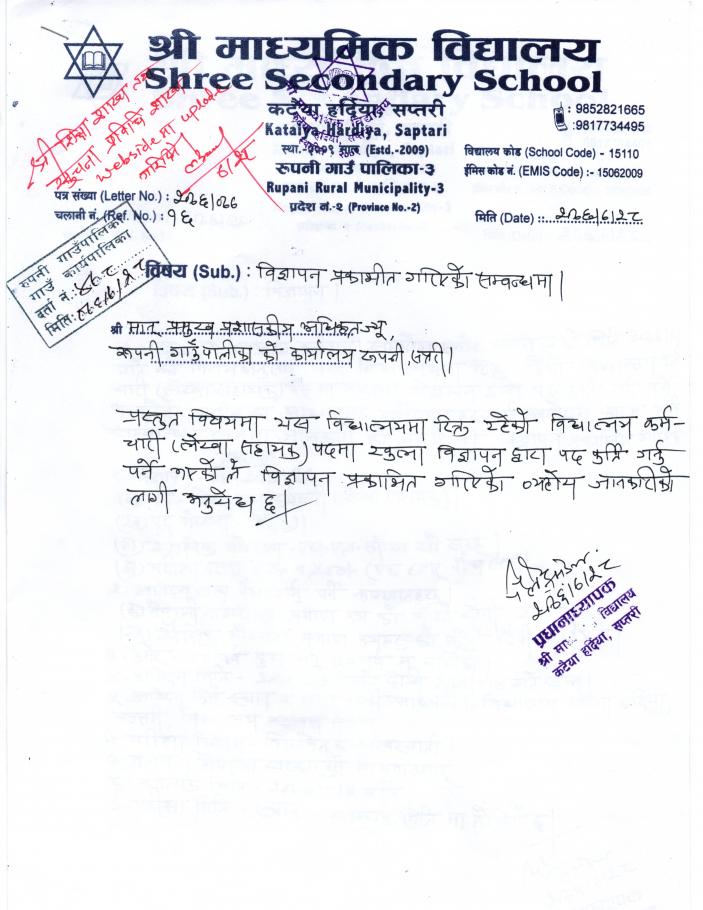 श्री माध्यमिक विद्यालय
Shree Secondary School
कटैया हर्दिया, सप्तरी
Kataiya Hardiya, Saptari
(Estd.-2009)
रुपनी गाउँ पालिका-३
Rupani Rural Municipality-3
प्रदेश नं.-२ (Province No.-2)
: 9852821665
:9817734495
विद्यालय कोड (School Code) - 15110
ईमिस कोड नं. (EMIS Code) :- 15062009
श्री शिक्षा शाखा
सूचना प्रविधि शाखा
webside मा upload
गरिदिने
६/२८
पत्र संख्या (Letter No.) : २०७६/०७७
चलानी नं. (Ref. No.) : १६
मिति (Date) ::. २०७६/६/२८
रुपनी गाउँपालिका
गाउँ कार्यपालिका
दर्ता नं.:
मिति:
विषय (Sub.) : विज्ञापन प्रकाशीत गरिएको सम्वन्धमा।
श्री मान प्रमुख प्रशासकीय अधिकृत ज्यू,
रूपनी गाउँपालीका को कार्यालय रूपनी, सप्तरी।
प्रस्तुत विषयमा यस विद्यालयमा रिक्त रहेको विद्यालय कर्म-
चारी (लेखा सहायक) पदमा खुल्ला विज्ञापन द्वारा पद पुर्ति गर्नु
पर्ने भएकोले विज्ञापन प्रकाशित गरिएको व्यहोरा जानकारीको
लागी अनुरोध छ।
२०७६/६/२८
प्रधानाध्यापक
श्री मा. विद्यालय
कटैया हर्दिया, सप्तरी